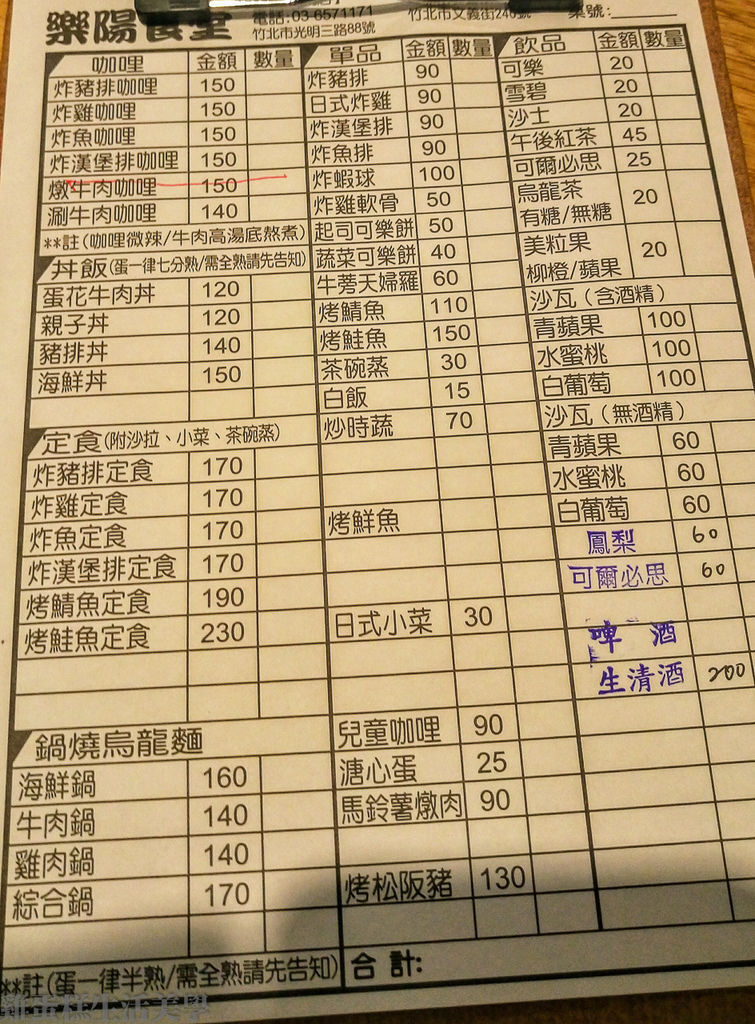 樂陽食堂
電話:03-6571171
竹北市光明三路88號
竹北市文義街246號
桌號:
咖哩 金額 數量
炸豬排咖哩 150
炸雞咖哩 150
炸魚咖哩 150
炸漢堡排咖哩 150
燉牛肉咖哩 150
涮牛肉咖哩 140
**註(咖哩微辣/牛肉高湯底熬煮)
丼飯(蛋一律七分熟/需全熟請先告知)
蛋花牛肉丼 120
親子丼 120
豬排丼 140
海鮮丼 150
定食(附沙拉、小菜、茶碗蒸)
炸豬排定食 170
炸雞定食 170
炸魚定食 170
炸漢堡排定食 170
烤鯖魚定食 190
烤鮭魚定食 230
鍋燒烏龍麵
海鮮鍋 160
牛肉鍋 140
雞肉鍋 140
綜合鍋 170
**註(蛋一律半熟/需全熟請先告知)
單品 金額 數量
炸豬排 90
日式炸雞 90
炸漢堡排 90
炸魚排 90
炸蝦球 100
炸雞軟骨 50
起司可樂餅 50
蔬菜可樂餅 40
牛蒡天婦羅 60
烤鯖魚 110
烤鮭魚 150
茶碗蒸 30
白飯 15
炒時蔬 70
烤鮮魚
日式小菜 30
兒童咖哩 90
溏心蛋 25
馬鈴薯燉肉 90
烤松阪豬 130
合計:
飲品 金額 數量
可樂 20
雪碧 20
沙士 20
午後紅茶 45
可爾必思 25
烏龍茶
有糖/無糖 20
美粒果
柳橙/蘋果 20
沙瓦(含酒精)
青蘋果 100
水蜜桃 100
白葡萄 100
沙瓦(無酒精)
青蘋果 60
水蜜桃 60
白葡萄 60
鳳梨 60
可爾必思 60
啤 酒
生清酒 200
雞蛋糕生活美學